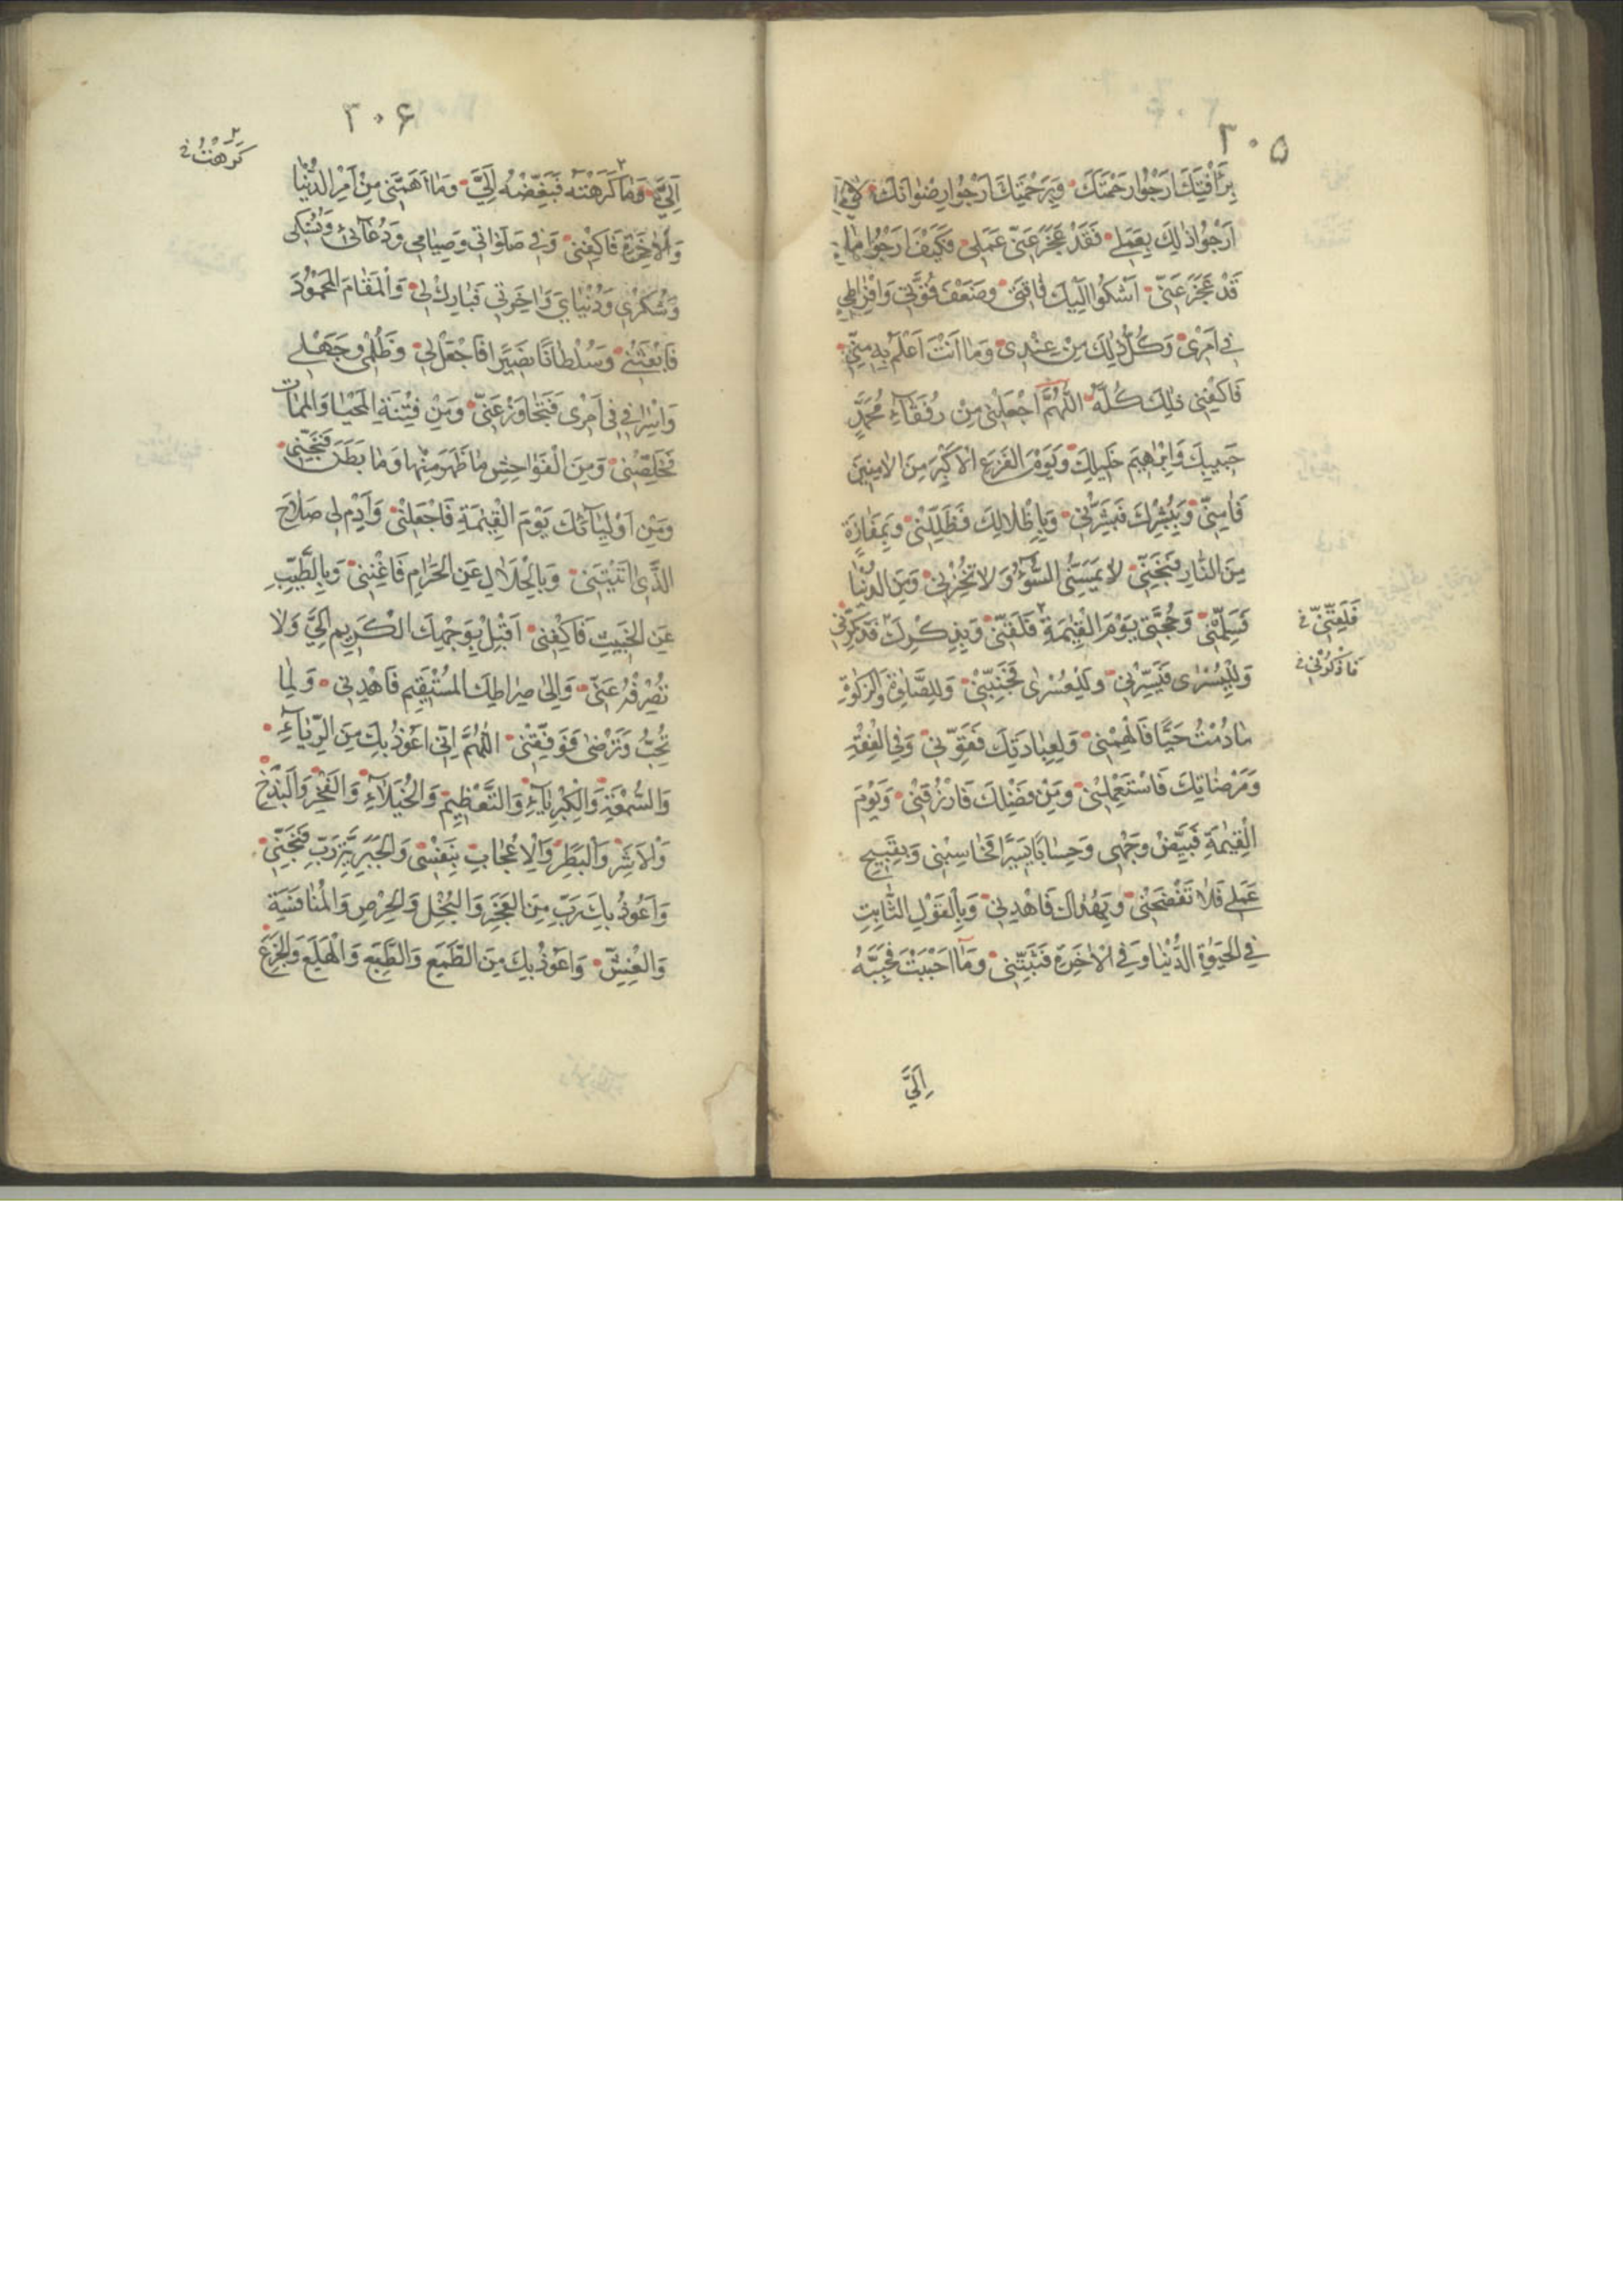 ٣٠۵
بِرَأْفَتِكَ اَرْجُوا رَحْمَتَكَ وَبِرَحْمَتِكَ اَرْجُوا رِضْوانَكَ لا
اَرْجُوا ذلِكَ بِعَمَلى فَقَدْ عَجَزَ عَنّى عَمَلى فَكَيْفَ اَرْجُوا ما
قَدْ عَجَزَ عَنّى اَشْكُوا اِلَيْكَ فاقَتى وَضَعْفَ قُوَّتى وَاِفْراطى
فى اَمْرى وَكُلُّ ذلِكَ مِنْ عِنْدى وَما اَنْتَ اَعْلَمُ بِه مِنّى
فَاكْفِنى ذلِكَ كُلَّهُ اَللّهُمَّ اجْعَلْنى مِنْ رُفَقآءِ مُحَمَّدٍ
حَبيبِكَ وَاِبْرهيمَ خَليلِكَ وَيَوْمَ الْفَزَعِ الْاَكْبَرِ مِنَ الْامِنينَ
فَامِنّى وَبِبُشْرِكَ فَبَشِّرْنى وَبِاِظْلالِكَ فَظَلِّلْنى وَبِمَفازَةٍ
مِنَ النّارِ فَنَجِّنى لا يَمَسَّنِى السُّوۤءُ وَلا تُخْزِنى وَمِنَ الدُّنْيا
فَسَلِّمْنى وَحُجَّتى يَوْمَ الْقِيمَةِ فَلَقِّنّى وَبِذِكْرِكَ فَذَكِّرْنى
فَلَقِّنّى
فَاذْكُرْنى
وَلِلْيُسْرى فَيَسِّرْنى وَلِلْعُسْرى فَجَنِّبْنى وَلِلصَّلوةِ وَالزَّكوةِ
ما دُمْتُ حَيًّا فَاَلْهِمْنى وَلِعِبادَتِكَ فَقَوِّنى وَفِى الْفِقْهِ
وَمَرْضاتِكَ فَاسْتَعْمِلْنى وَمِنْ فَضْلِكَ فَارْزُقْنى وَيَوْمَ
الْقِيمَةِ فَبَيِّضْ وَجْهى وَحِسابًا يَسيرًا فَحاسِبْنى وَبِقَبيحِ
عَمَلى فَلا تَفْضَحْنى وَبِهُداكَ فَاهْدِنى وَبِالْقَوْلِ الثّابِتِ
فِى الْحَيوةِ الدُّنْيا وَفِى الْاخِرَةِ فَثَبِّتْنى وَما اَحْبَبْتَ فَحَبِّبْهُ
اِلَىَّ
٣٠۶
كَرِهْتُ
اِلَىَّ وَما كَرِهْتَهُ فَبَغِّضْهُ اِلَىَّ وَما اَهَمَّنى مِنْ اَمْرِ الدُّنْيا
وَالْاخِرَةِ فَاكْفِنى وَفى صَلَواتى وَصِيامى وَدُعآئى وَنُسُكى
وَشُكْرى وَدُنْياىَ وَاخِرَتى فَبارِكْ لى وَالْمَقامَ الْمَحْمُودَ
فَابْعَثْنى وَسُلْطانًا نَصيرًا فَاجْعَلْ لى وَظُلْمى وَجَهْلى
وَاِسْرافى فى اَمْرى فَتَجاوَزْ عَنّى وَمِنْ فِتْنَةِ الْمَحْيا وَالْمَماتِ
فَخَلِّصْنى وَمِنَ الْفَواحِشِ ما ظَهَرَ مِنْها وَما بَطَنَ فَنَجِّنى
وَمِنْ اَوْلِيآئِكَ يَوْمَ الْقِيمَةِ فَاجْعَلْنى وَاَدِمْ لى صَلاحَ
الَّذى اتَيْتَنى وَبِالْحَلالِ عَنِ الْحَرامِ فَاَغْنِنى وَبِالطَّيِّبِ
عَنِ الْخَبيثِ فَاكْفِنى اَقْبِلْ بِوَجْهِكَ الْكَريمِ اِلَىَّ وَلا
تَصْرِفْهُ عَنّى وَاِلى صِراطِكَ الْمُسْتَقيمِ فَاهْدِنى وَلِما
تُحِبُّ وَتَرْضى فَوَفِّقْنى اَللّهُمَّ اِنّى اَعُوذُ بِكَ مِنَ الرِّيآءِ
وَالسُّمْعَةِ وَالْكِبْرِيآءِ وَالتَّعْظيمِ وَالْخُيَلآءِ وَالْفَخْرِ وَالْبَذَخِ
وَالْاَشَرِ وَالْبَطَرِ وَالْاِعْجابِ بِنَفْسى وَالْجَبَرِيَّةِ رَبِّ فَنَجِّنى
وَاَعُوذُ بِكَ رَبِّ مِنَ الْعَجْزِ وَالْبُخْلِ وَالْحِرْصِ وَالْمُنافَسَةِ
وَالْغِشِّ وَاَعُوذُ بِكَ مِنَ الطَّمَعِ وَالطَّبَعِ وَالْهَلَعِ وَالْجَزَعِ